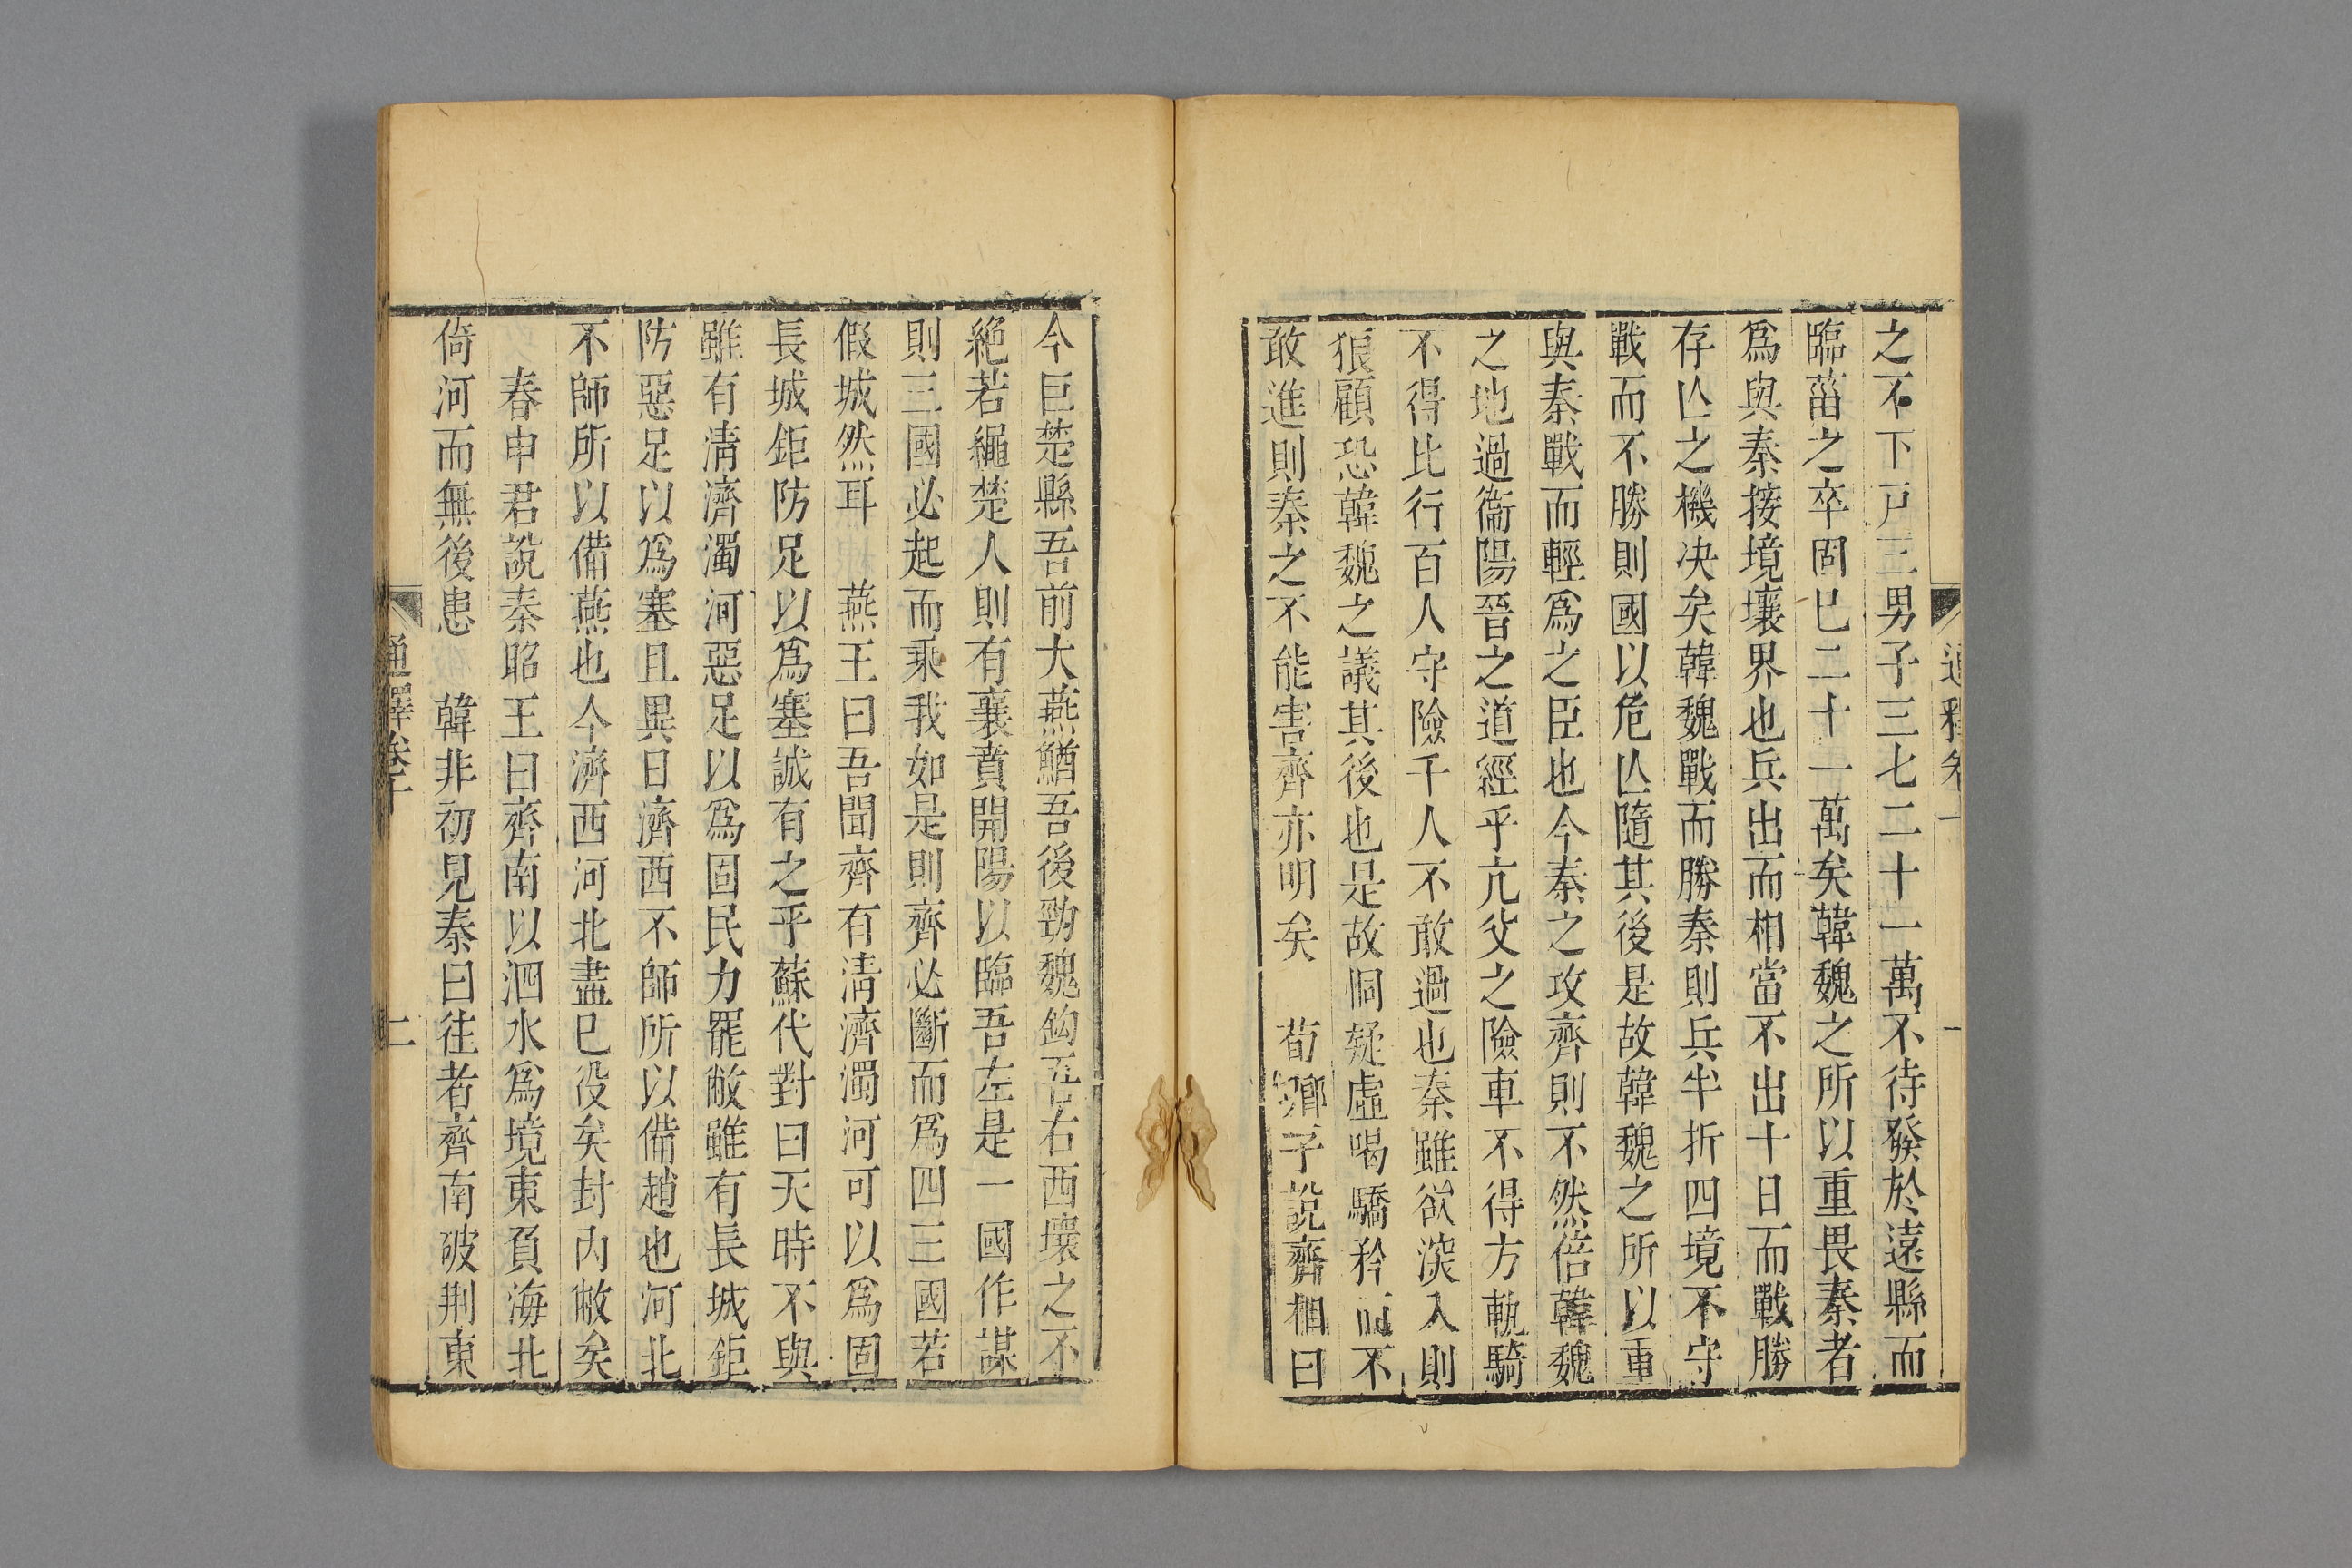 之不下戸三男子三七二十一萬不待發於遠縣而
臨菑之卒固巳二十一萬矣韓魏之所以重畏秦者
爲與秦接境壤界也兵出而相當不出十日而戰勝
存亾之機決矣韓魏戰而勝秦則兵半折四境不守
戰而不勝則國以危亾隨其後是故韓魏之所以重
與秦戰而輕爲之臣也今秦之攻齊則不然倍韓魏
之地過衞陽晉之道經乎亢父之險車不得方軌騎
不得比行百人守險千人不敢過也秦雖欲深入則
狼顧恐韓魏之議其後也是故恫疑虛喝驕矜而不
敢進則秦之不能害齊亦明矣　荀卿子說齊相曰
今巨楚縣吾前大燕鰌吾後勁魏鈎吾右西壤之不
絶若繩楚人則有襄賁開陽以臨吾左是一國作謀
則三國必起而乘我如是則齊必斷而爲四三國若
假城然耳　燕王曰吾聞齊有淸濟濁河可以爲固
長城鉅防足以爲塞誠有之乎蘇代對曰天時不與
雖有淸濟濁河惡足以爲固民力罷敝雖有長城鉅
防惡足以爲塞且異日濟西不師所以備趙也河北
不師所以備燕也今濟西河北盡巳役矣封內敝矣
春申君說秦昭王曰齊南以泗水爲境東負海北
倚河而無後患　韓非初見秦曰往者齊南破荆東
通釋卷十
二